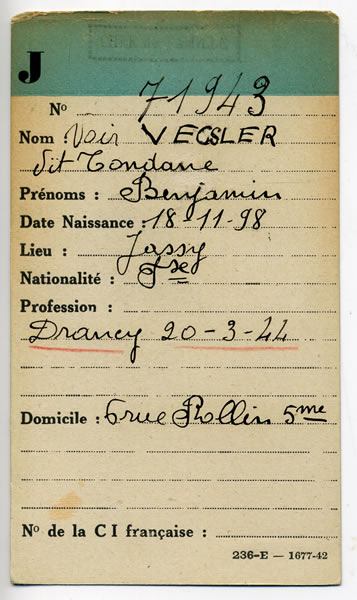 J
No 71943
Nom : Voir VECSLER
dit Fondane
Prénoms : Benjamin
Date Naissance : 18-11-98
Lieu : Jassy
Nationalité : fse
Profession :
Drancy 20-3-44
Domicile : 6 rue Rollin 5me
No de la C I française :
236-E — 1677-42